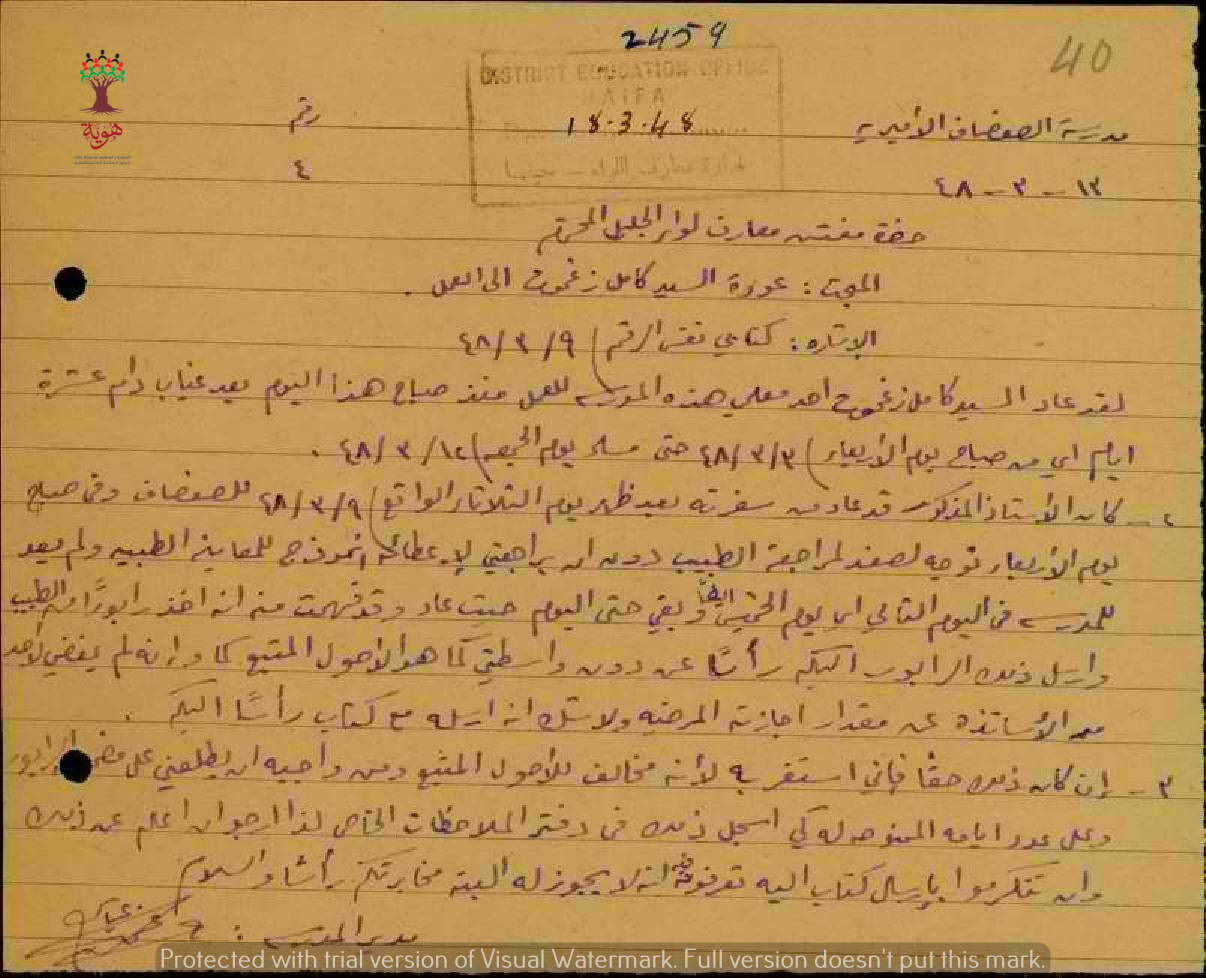 2459
40
DISTRICT EDUCATION OFFICE
HAIFA
18.3.48
ادارة معارف اللواء - حيفا
مدرسة الصفصاف الأميريه
رقم
١٣ - ٣ - ٤٨
٤
هوية
حضرة مفتش معارف لواء الجليل المحترم
المبحث : عودة السيد كامل زغموت الى العمل .
الإشاره : كتابي نفس الرقم ٩ / ٣ / ٤٨
لقد عاد السيد كامل زغموت احد معلمي هذه المدرسه للعمل منذ صباح هذا اليوم بعد غياب دام عشرة
ايام اي من صباح يوم الأربعاء ٣/٣/٤٨ حتى مساء يوم الجمعه ١٢/ ٣ /٤٨ .
٢ - كان الأستاذ المذكور قد عاد من سفرته بعد ظهر يوم الثلاثاء الواقع ٩/ ٣/ ٤٨ للصفصاف وفي صباح
يوم الأربعاء توجه لصفد لمراجعة الطبيب دون ان يراجعني لإعطائه نموذج للمعاينة الطبيه ولم يعد
للمدرسه في اليوم التالي اي يوم الخميس ايضاً وبقي حتى اليوم حيث عاد وقد فهمت منه انه اخذ رابوراً من الطبيب
وارسل ذلك الرابور اليكم رأسًا عن دون واسطتي كما هو الأصول المتبع كما وانه لم يفضي لأحد
من الأساتذه عن مقدار اجازته المرضيه ولا شك انه ارسله مع كتاب رأسًا اليكم .
٣ - إن كان ذلك حقًا فإني استغربه لأنه مخالف للأصول المتبع ومن واجبه ان يطلعني على الرابور
وعلى عدد ايامه الممنوحه له كي اسجل ذلك في دفتر الملاحظات الخاص لذا ارجو ان اعلم عن ذلك
وان تتكرموا بإرسال كتاب اليه تعرفونه فيه انه لا يجوز له البته مخابرتكم رأسًا والسلام
مدير المدرسه :
Protected with trial version of Visual Watermark. Full version doesn't put this mark.